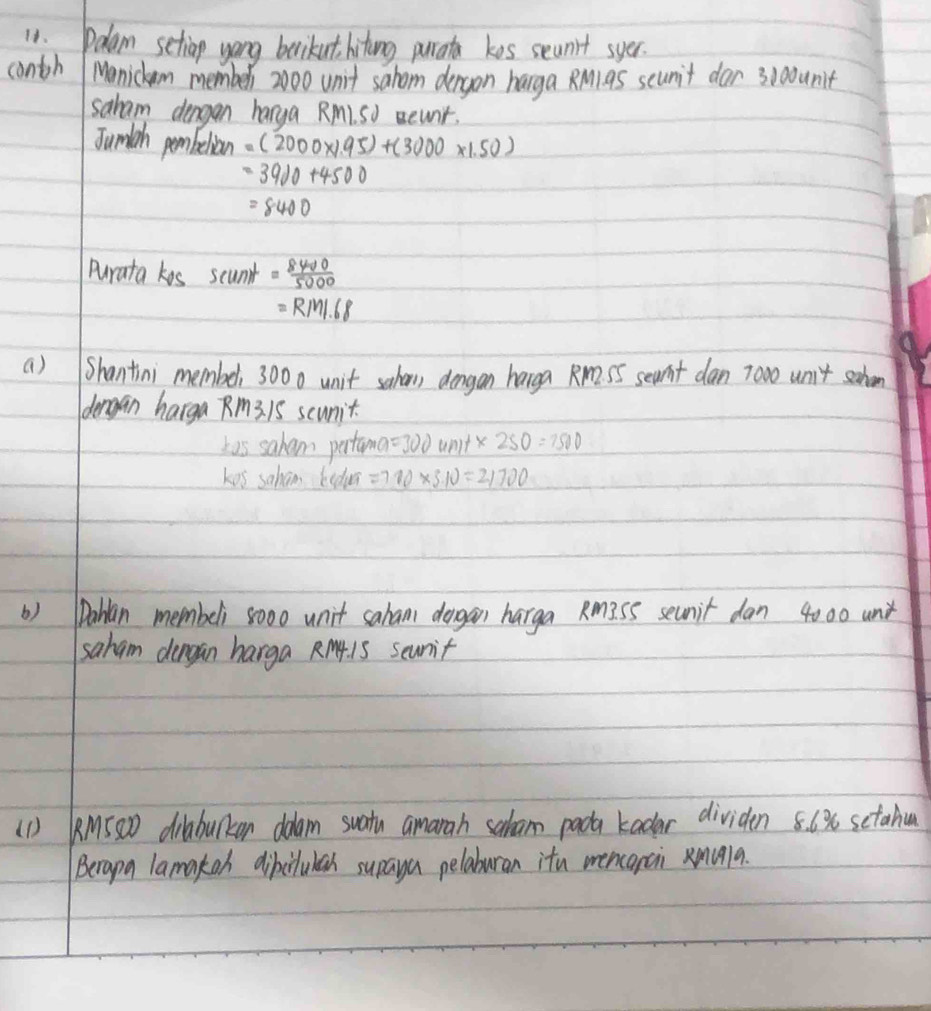 11. Dalam setiap yang berikut, hitung purata kos seunit syer.
contoh Manickam membeli 2000 unit saham dengan harga RM1.95 seunit dan 3000 unit
saham dengan harga RM1.50 seunit.
Jumlah pembelian = (2000 x1.95) + (3000 x1.50)
= 3900 + 4500
= 8400
Purata kos seunit = 8400/5000
= RM1.68
a) Shantini membeli 3000 unit saham dengan harga RM2.55 seunit dan 7000 unit saham
dengan harga RM3.15 seunit.
kos saham pertama = 300 unit x 250 = 7500
kos saham kedua = 700 x 3.10 = 21700
b) Dahlan membeli 8000 unit saham dengan harga RM3.55 seunit dan 4000 unit
saham dengan harga RM4.15 seunit
RM500 dilaburkan dalam suatu amanah saham pada kadar dividen 8.6% setahun
Berapa lamakah diperlukan supaya pelaburan itu mencapai